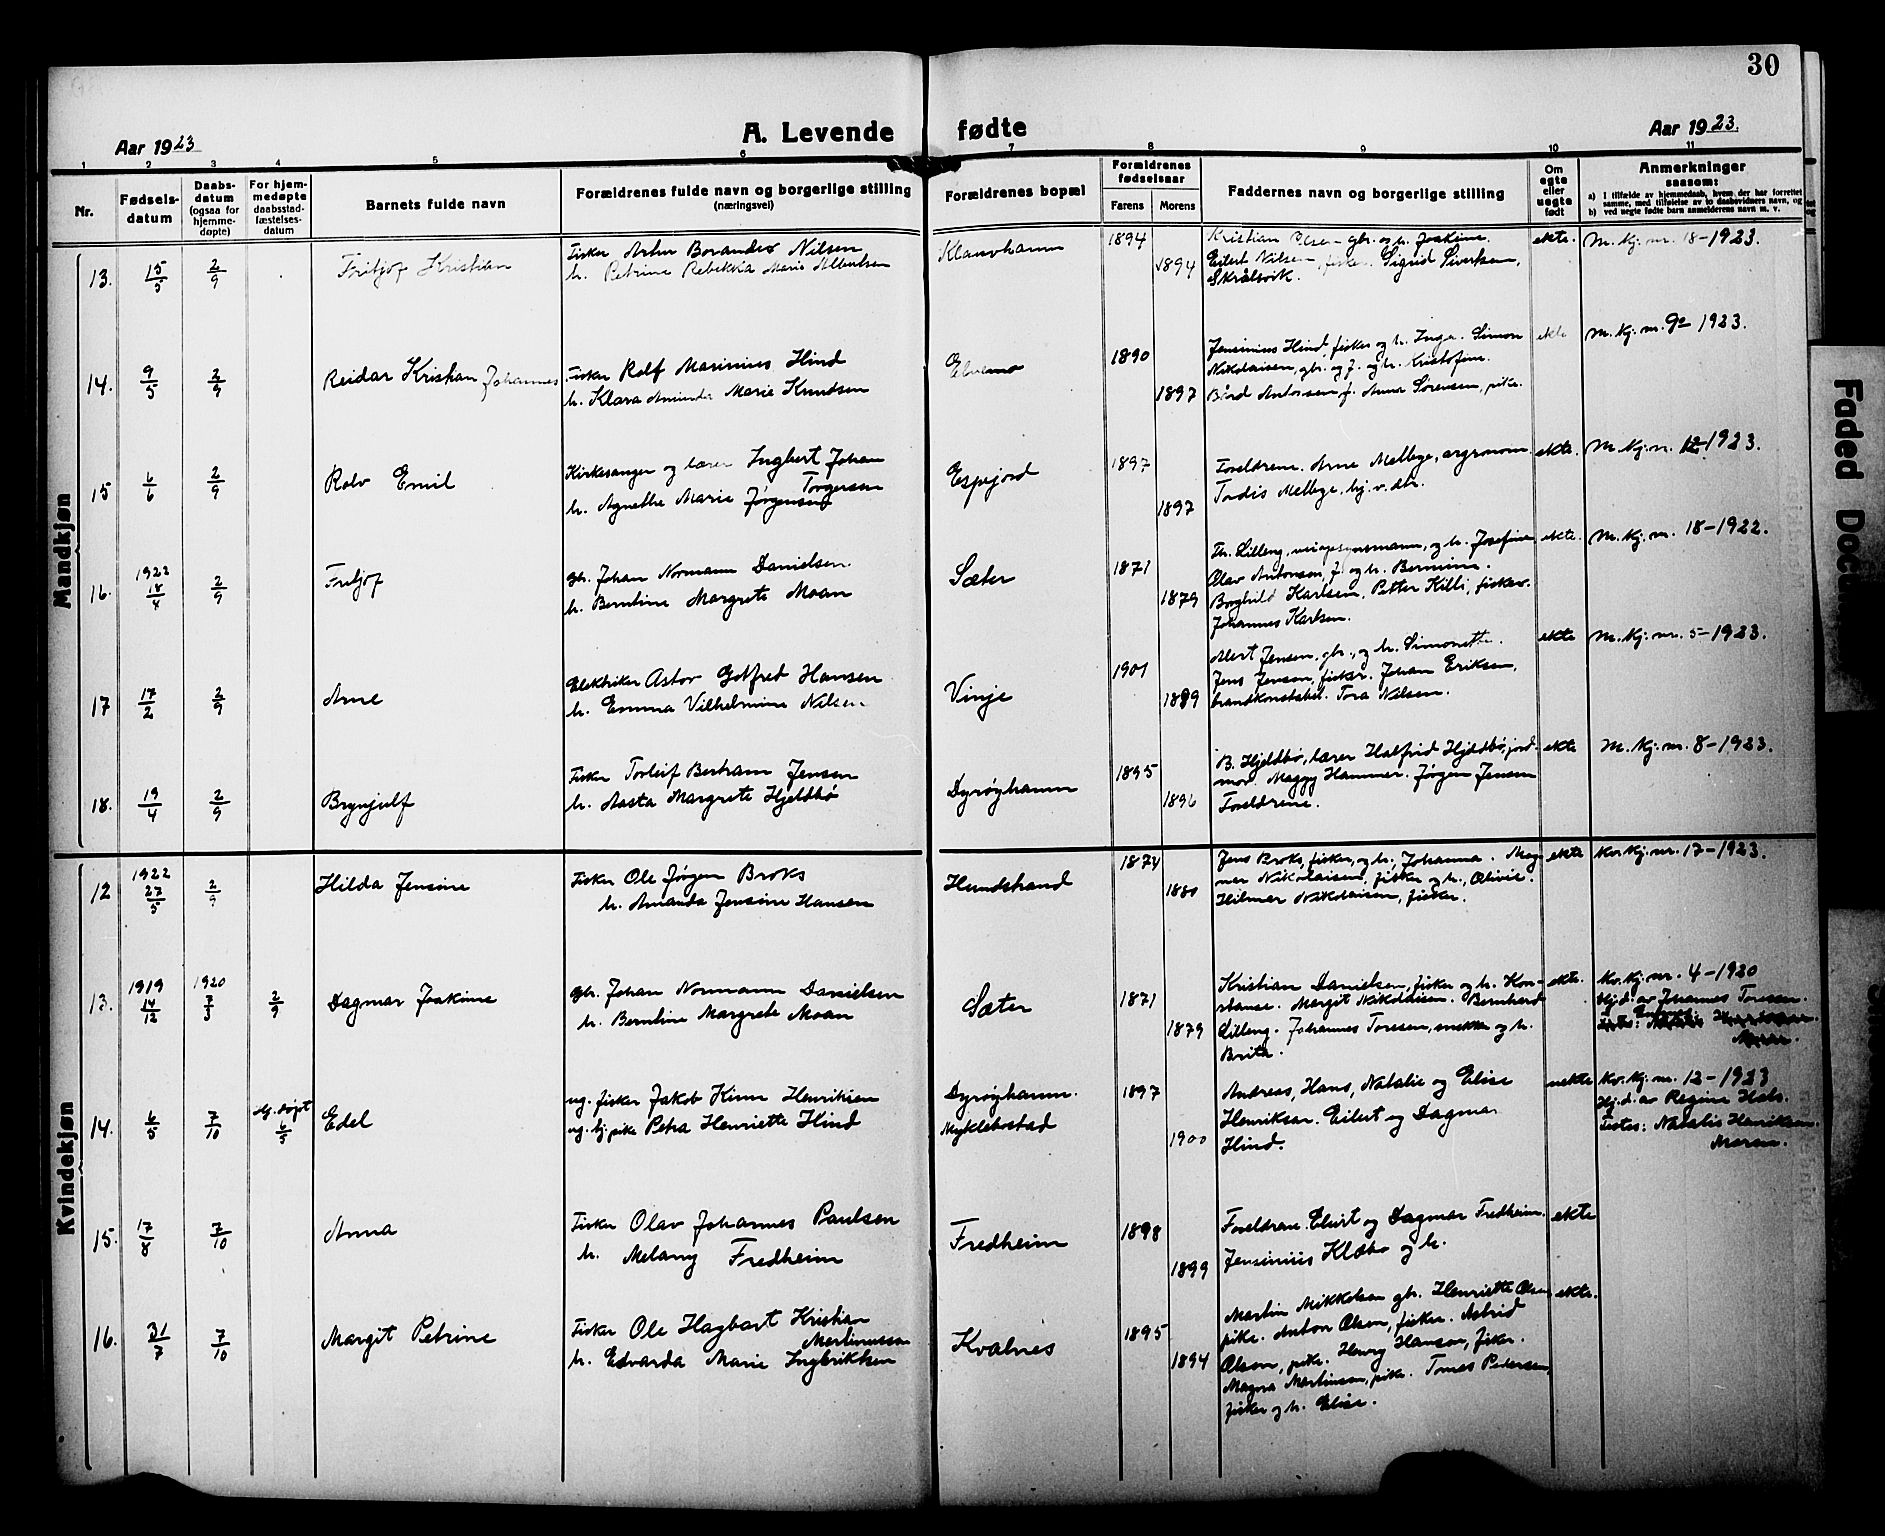 30
Aar 1923
A. Levende fødte
Aar 1923.
1 2 3 4 5 6 7 8 9 10 11
Nr.
Fødsels-
datum
Daabs-
datum
(ogsaa for
hjemme-
døpte)
For hjem-
medøpte
daabsstad-
fæstelses-
datum
Barnets fulde navn
Forældrenes fulde navn og borgerlige stilling
(næringsvei)
Forældrenes bopæl
Forældrenes
fødselsaar
Farens Morens
Faddernes navn og borgerlige stilling
Om
egte
eller
uegte
født
Anmerkninger
saasom:
a) I tilfælde av hjemmedaab, hvem der har forrettet
samme, med tilføielse av to daabsvidners navn, og
b) ved uegte fødte barn anmelderens navn m. v.
Mandkjøn
13. 15/5 2/9 Fritjof Kristian
Fisker Artur Borander Nilsen
h. Petrine Rebekka Marie Albertsen
Klauvhamn
1894
1894
Kristian Olsen gbr. og h. Joakime.
Eilert Nilsen, fisker. Sigrid Sivertsen,
Skrålsvik.
ekte.
M. kj. nr. 18-1923.
14. 9/5 2/9 Reidar Kristian Johannes
Fisker Rolf Marinius Hind
h. Klara Aminda Marie Knudsen
Elvemo
1890
1897
Jensinius Hind, fisker og h. Inga. Simon
Nikolaisen, gbr. og f. og h. Kristofine.
Bård Antonsen f. Anna Sørensen, pike.
ekte
M. kj. nr. 9-1923.
15 6/6 2/9 Rolv Emil
Kirkesanger og lærer Ingbert Johan
Torgersen
h. Agnethe Marie Jørgensen
Espejord
1897
1897
Foreldrene. Arne Mellbye, agronom.
Tordis Mellbye, hj. v. dtr.
ekte.
M. kj. nr. 12-1923.
16. 1922 18/4 2/9 Fritjof
gbr. Johan Normann Danielsen.
h. Berntine Margrete Moan
Sæter
1871
1879
Th. Lilleng, veiopsynsmann, og h. Josefine
Olav Antonsen, f. og h. Bernine.
Borghild Karlsen, Petter Killi, fisker.
Johannes Karlsen.
ekte.
M. kj. nr. 18-1922.
17 17/2 2/9 Arne
Elektriker Astor Gotfred Hansen
h. Emma Vilhelmine Nilsen
Vinje
1901
1899
Albert Jensen, gbr., og h. Simonette.
Jens Jenson, fisker. Johan Eriksen,
brandkonstabel. Tora Nilsen.
ekte
M. kj. nr. 5-1923.
18. 19/4 2/9 Brynjulf
Fisker Torleif Bertram Jensen
h. Aasta Margrete Hjeldbø
Dyrøyhamn
1895
1896
B. Hjeldbø, lærer Halfrid Hjeldbø, jord-
mor. Maggy Hammer. Jørgen Jensen
Foreldrene.
ekte
M. kj. nr. 8-1923.
Kvindekjøn
12 1922 27/5 2/9 Hilda Jensine
Fisker Ole Jørgen Broks
h. Amanda Jensine Hansen
Hundstrand
1874
1880
Jens Broks, fisker, og h., Johanna. Mag-
nar Nikolaisen, fisker og h., Olivie.
Hilmar Nikolaisen, fisker.
ekte
Kv. kj. nr. 17-1923.
13. 1919 14/12 1920 7/3 2/9 Dagmar Joakime
gbr. Johan Normann Danielsen
h. Berntine Margrete Moan
Sæter
1871
1879
Kristian Danielsen, fisker og h. Kon-
stanse. Margit Nikolaisen. Bernhard
Lilleng. Johannes Toresen, snekker og h.
Brita.
ekte.
Kv. kj. nr. 4-1920
Hj.d. av Johannes Toresen.
14. 6/5 7/10 Hj. døpt 6/5 Edel
ug. fisker Jakob Kinn Henriksen
ug. hj. pike Petra Henriette Hind
Dyrøyhamn.
Myklebostad
1897
1900
Andreas, Hans, Natalie og Elise
Henriksen. Eilert og Dagmar
Hind.
uekte
Kv. kj. nr. 12-1923
Hj.d. av Regine Hals.
Testes: Natalie Henriksen.
Moren.
15. 17/8 7/10 Anna
Fisker Olav Johannes Paulsen
h. Melany Fredheim
Fredheim
1898
1899
Foreldrene. Eilert og Dagmar Fredheim.
Jensinius Klæbo og h.
ekte
16. 31/7 7/10 Margit Petrine
Fisker Ole Hagbart Kristian
Martinussen
h. Edvarda Marie Ingbriktsen
Kvalnes
1895
1894
Martin Mikkelsen gbr. Henriette Olsen
pike. Anton Olsen, fisker. Astrid
Olsen, pike. Henry Hanson, fisker.
Magna Martinsen, pike. Tomas Pedersen,
fisker og h. Elise.
ekte.
Faded Doc